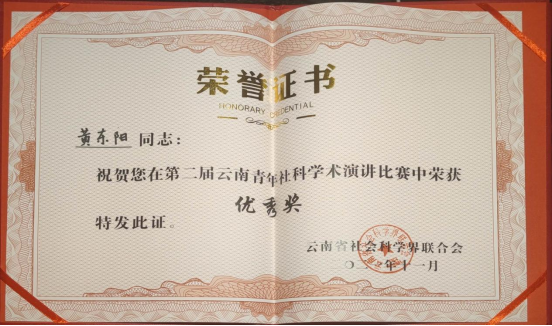 荣誉证书
HONORARY CREDENTIAL
黄东阳 同志：
祝贺您在第二届云南青年社科学术演讲比赛中荣获
优秀奖
特发此证。
云南省社会科学界联合会
年十一月